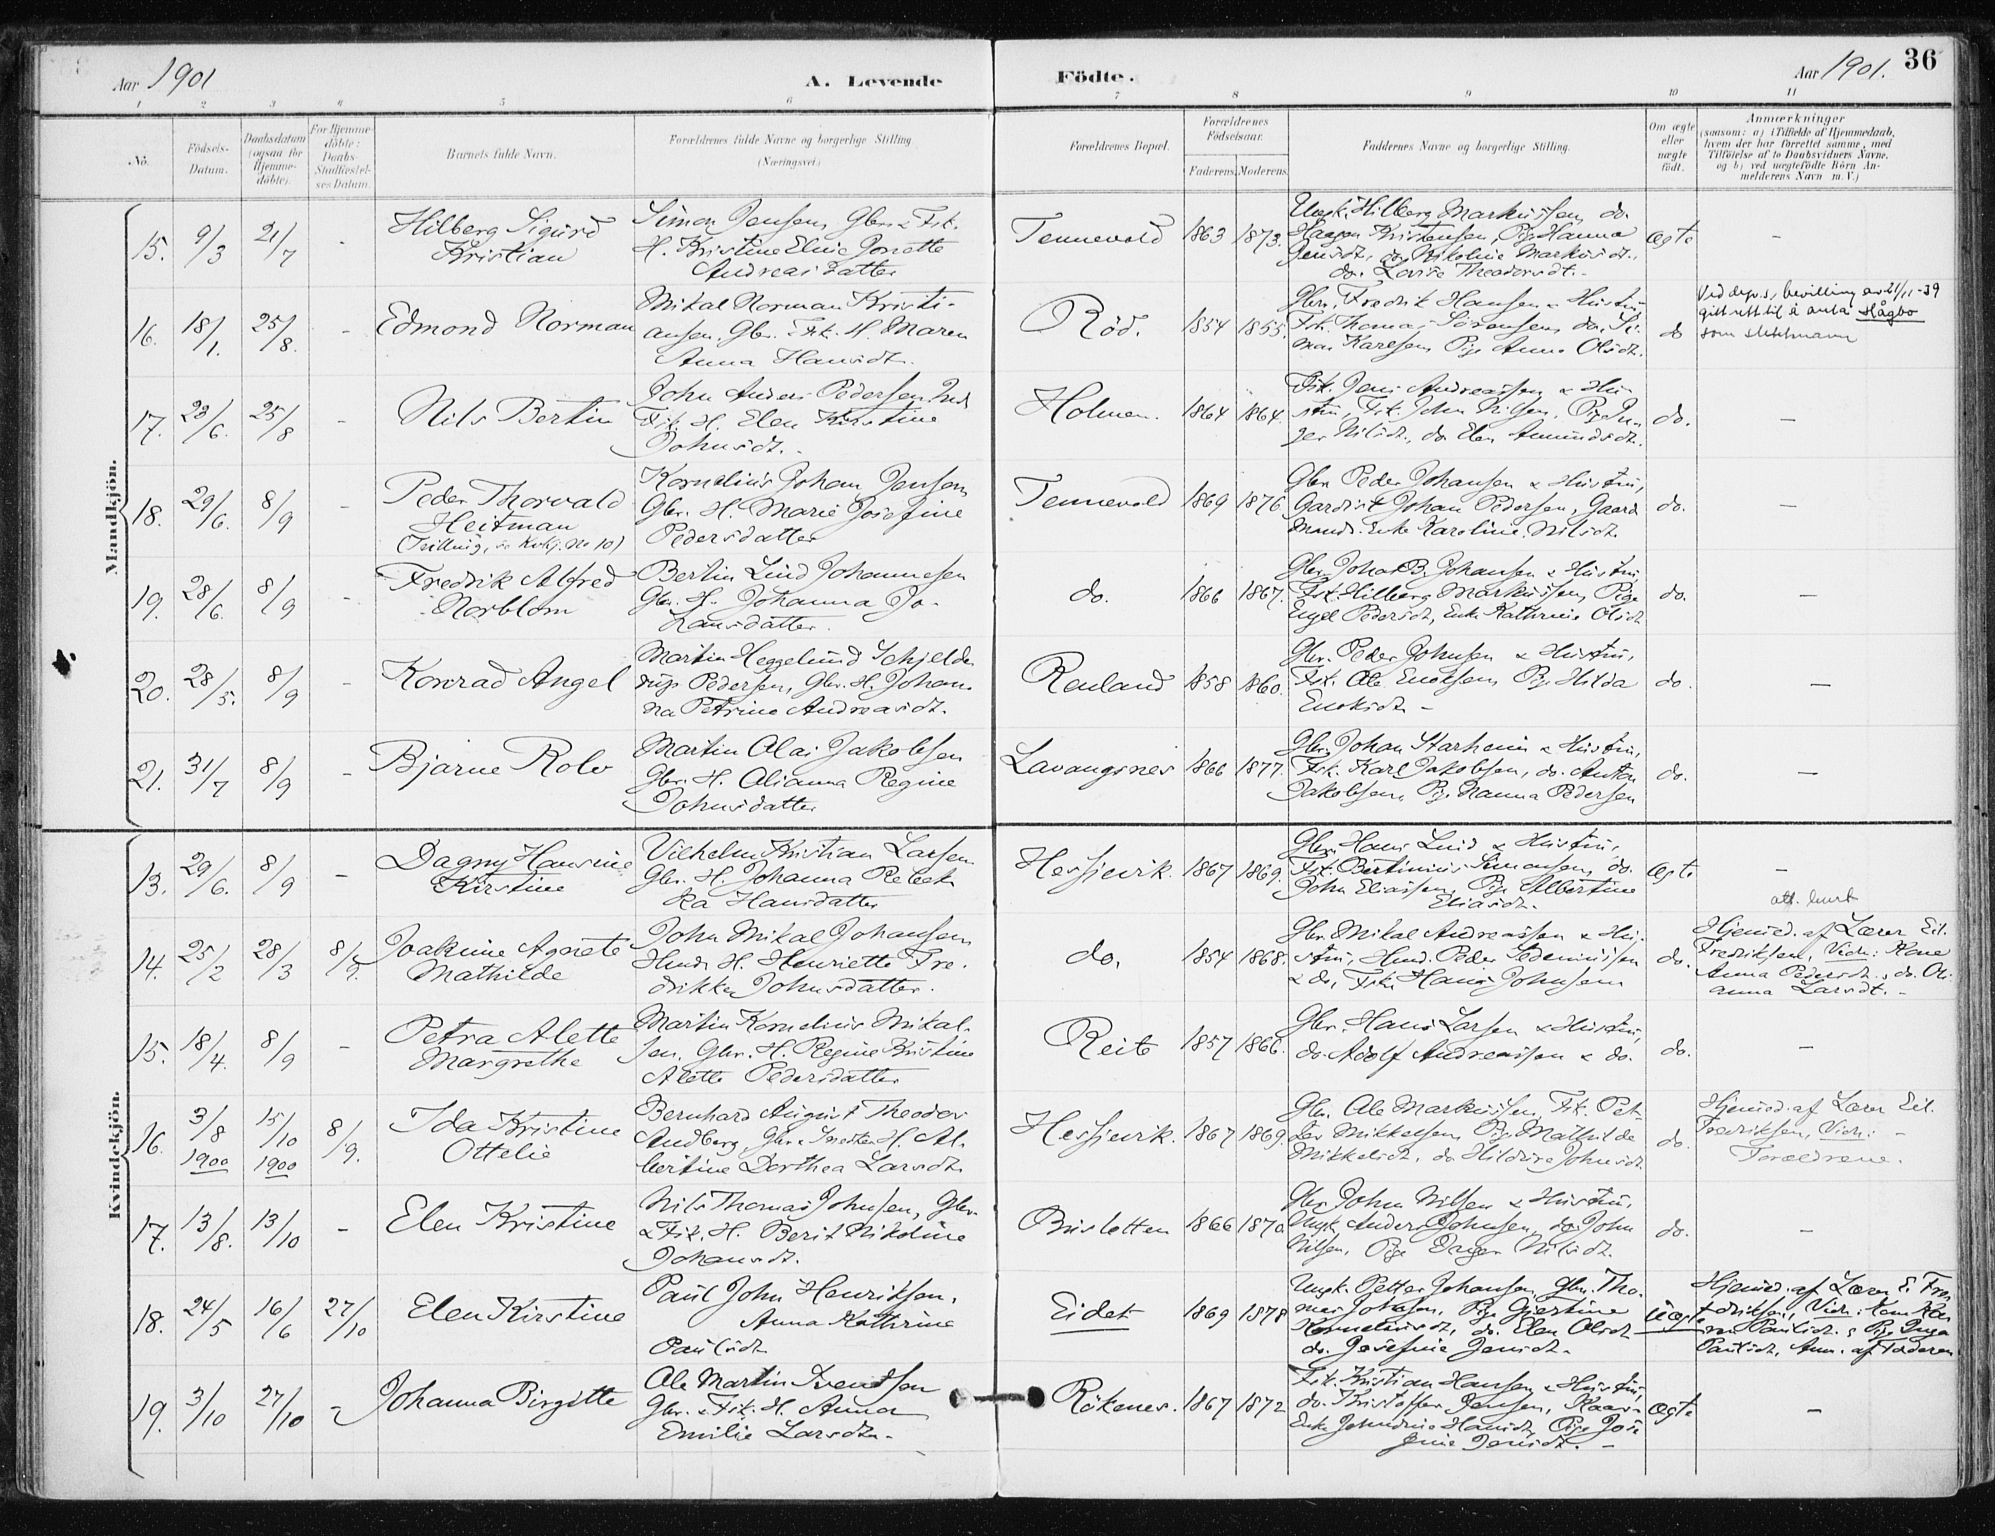 Aar 1901
A. Levende
Födte.
Aar 1901.
36
1 2 3 4 5 6 7 8 9 10 11
No.
Födsels-
Datum.
Daabsdatum
(ogsaa for
Hjemme-
döbte).
For Hjemme-
döbte:
Daabs-
Stadfæstel-
ses Datum.
Barnets fulde Navn.
Forældrenes fulde Navne og borgerlige Stilling
(Næringsvei)
Forældrenes Bopæl.
Forældrenes
Födselsaar.
Faderens.
Moderens.
Faddernes Navne og borgerlige Stilling.
Om ægte
eller
uægte
födt.
Anmærkninger
(saasom: a) i Tilfælde af Hjemmedaab,
hvem der har forrettet samme, med
Tilföielse af to Daabsvidners Navne,
og b) ved uægtefödte Börn An-
melderens Navn m. V.)
Mandkjön.
15. 9/3 21/7 -
Hilberg Sigurd
Kristian
Simon Jensen, Gbr. & Fisk.
H. Kristine Eline Josette
Andreasdatter
Tennevold 1863 1873.
Ungk. Hilberg Markussen, do.
Haagen Kristensen, Pige Hanna
Jensdt., do. Nikoline Markusdt.,
do. Lovise Theodorsdt. -
ægte -
16. 18/1. 25/8. -
Edmond Norman
Mikal Norman Kristi-
ansen, Gbr. Fisk. H. Maren
Anna Hansdt.
Röd. 1854 1855.
Gbr. Fredrik Hansen & Hustru,
Fisk. Thomas Sörensen, do. Si-
mon Karlsen, Pige Anna Olsdt.
do
Ved deps. bevilling av 21/11-39
gitt rett til å anta Hågbo
som slektsnavn
17. 23/6. 25/8 -
Nils Bertin
John Anders Pedersen, Ind.
Fisk. H. Elen Kirstine
Johnsdt. -
Holmen. 1864 1864.
Fisk. Jens Andreassen & Hu-
stru, Fisk. John Nilsen, Pige In-
ger Nilsdt., do Elen Amundsdt.
do. -
18. 29/6. 8/9 -
Peder Thorvald
Heitman
(Tvilling, se Kvkj. No 10)
Kornelius Johan Jensen
Gbr. H. Marie Josefine
Pedersdatter
Tennevold 1869 1876
Gbr. Peder Johansen & Hustru,
Gardist Johan Pedersen, Gaard
mands Enke Karoline Nilsdt.
do. -
19. 28/6. 8/9 -
Fredrik Alfred
Norblom
Bertin Lind Johannesen
Gbr. H. Johanna Jo-
hansdatter.
do. 1866 1867.
Gbr. Johan B. Johansen & Hustru,
Fisk. Hilberg Markussen, Pige
Engel Pedersdt., Enke Kathrine Olsdt
do. -
20. 28/5. 8/9 -
Konrad Angel
Martin Heggelund Schjelde
rup Pedersen, Gbr. H. Johan-
na Petrine Andreasdt.
Renland 1858 1860.
Gbr. Peder Johnsen & Hustru,
Fisk. Ole Enoksen, Pige Hilda
Enoksdt. -
do. -
21. 31/7 8/9 -
Bjarne Rolv
Martin Olai Jakobsen
Gbr. H. Alianna Regine
Johnsdatter
Lavangsnes 1866 1877.
Gbr. Johan Starheim & Hustru,
Fisk. Karl Jakobsen, do. Anton
Jakobsen, Pige Nanna Pedersen
do. -
Kvindekjön.
13. 29/6. 8/9 -
Dagny Hansine
Kirstine
Vilhelm Kristian Larsen
Gbr. H. Johanna Rebek
ka Hansdatter
Hessjevik. 1867 1869.
Gbr. Hans Lind & Hustru,
Fisk. Bertinius Simonsen, do.
John Eliassen, Pige Albertine
Eliasdt.
ægte -
14. 25/2 28/3 8/9.
Joakime Agnete
Mathilde
John Mikal Johansen
Husm. H. Henriette Fre-
drikke Johnsdatter.
do. 1854 1868.
Gbr. Mikal Andreassen & Hu-
stru, Husm. Peder Pedersen
& do., Fisk. Hans Johnsen
do.
att. huvt
Hjemmed. af Lærer Eil.
Fredriksen, Vidn: Kone
Anna Pedersdt., do. Oli-
anna Larsdt. -
15. 18/4. 8/9 -
Petra Alette
Margrethe
Martin Kornelius Mikal-
sen, Gbr. H. Regine Kristine
Alette Pedersdatter
Reit 1857 1866.
Gbr. Hans Larsen & Hustru,
do. Adolf Andreassen & do.
do. -
16. 3/8 1900 15/10 1900 8/9.
Ida Kristine
Ottelie
Bernhard August Theodor
Andberg, Gbr. & Snedker H. Al-
bertine Dorthea Larsdt.
Hessjevik. 1867 1869.
Gbr. Ole Markussen, Fisk. Pet-
ter Mikkelsen, Pige Mathilde
Mikkelsdt., do Hildine Johnsdt.
do.
Hjemmed. af Lærer Eil.
Fredriksen, Vidn: -
Forældrene.
17. 13/8. 13/10 -
Elen Kristine
Nils Thomas Johnsen, Gbr.
& Fisk. H. Berit Nikoline
Johansdt.
Brusletten 1866 1870
Gbr. John Nilsen & Hustru,
Ungk. Anders Johnsen, do. John
Nilsen, Pige Inger Nilsdt.
do. -
18. 24/5 16/6 27/10
Elen Kirstine
Paul John Henriksen,
Anna Kathrine
Paulsdt
Eidet 1869 1878
Ungk. Petter Johansen, Gbr. Tho-
mas Johnsen, Pige Gjertine
Korneliusdt., do. Elen Olsdt
do. Josefine Jensdt. -
Uægte
Hjemmed. af Lærer E. Fre-
driksen, Vidn: Kone
Paulsdt. & Pige Inga
Paulsdt., Anm. af Faderen
19. 3/10 27/10 -
Johanna Birgitte
Ole Martin Svendsen
Gbr. & Fisk. H. Anna
Emilie Larsdt. -
Rökenes. 1867 1872
Fisk. Kristian Hansen & Hustru,
do. Kristoffer Jensen, Kaar-
Enke Hansdt, Pige Jose
fine Jensdt. -
ægte -